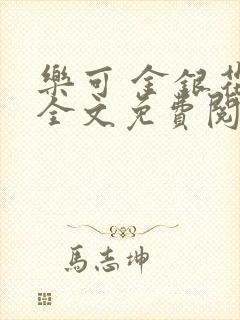 樂可 金銀花
全文免費閱
馬志坤